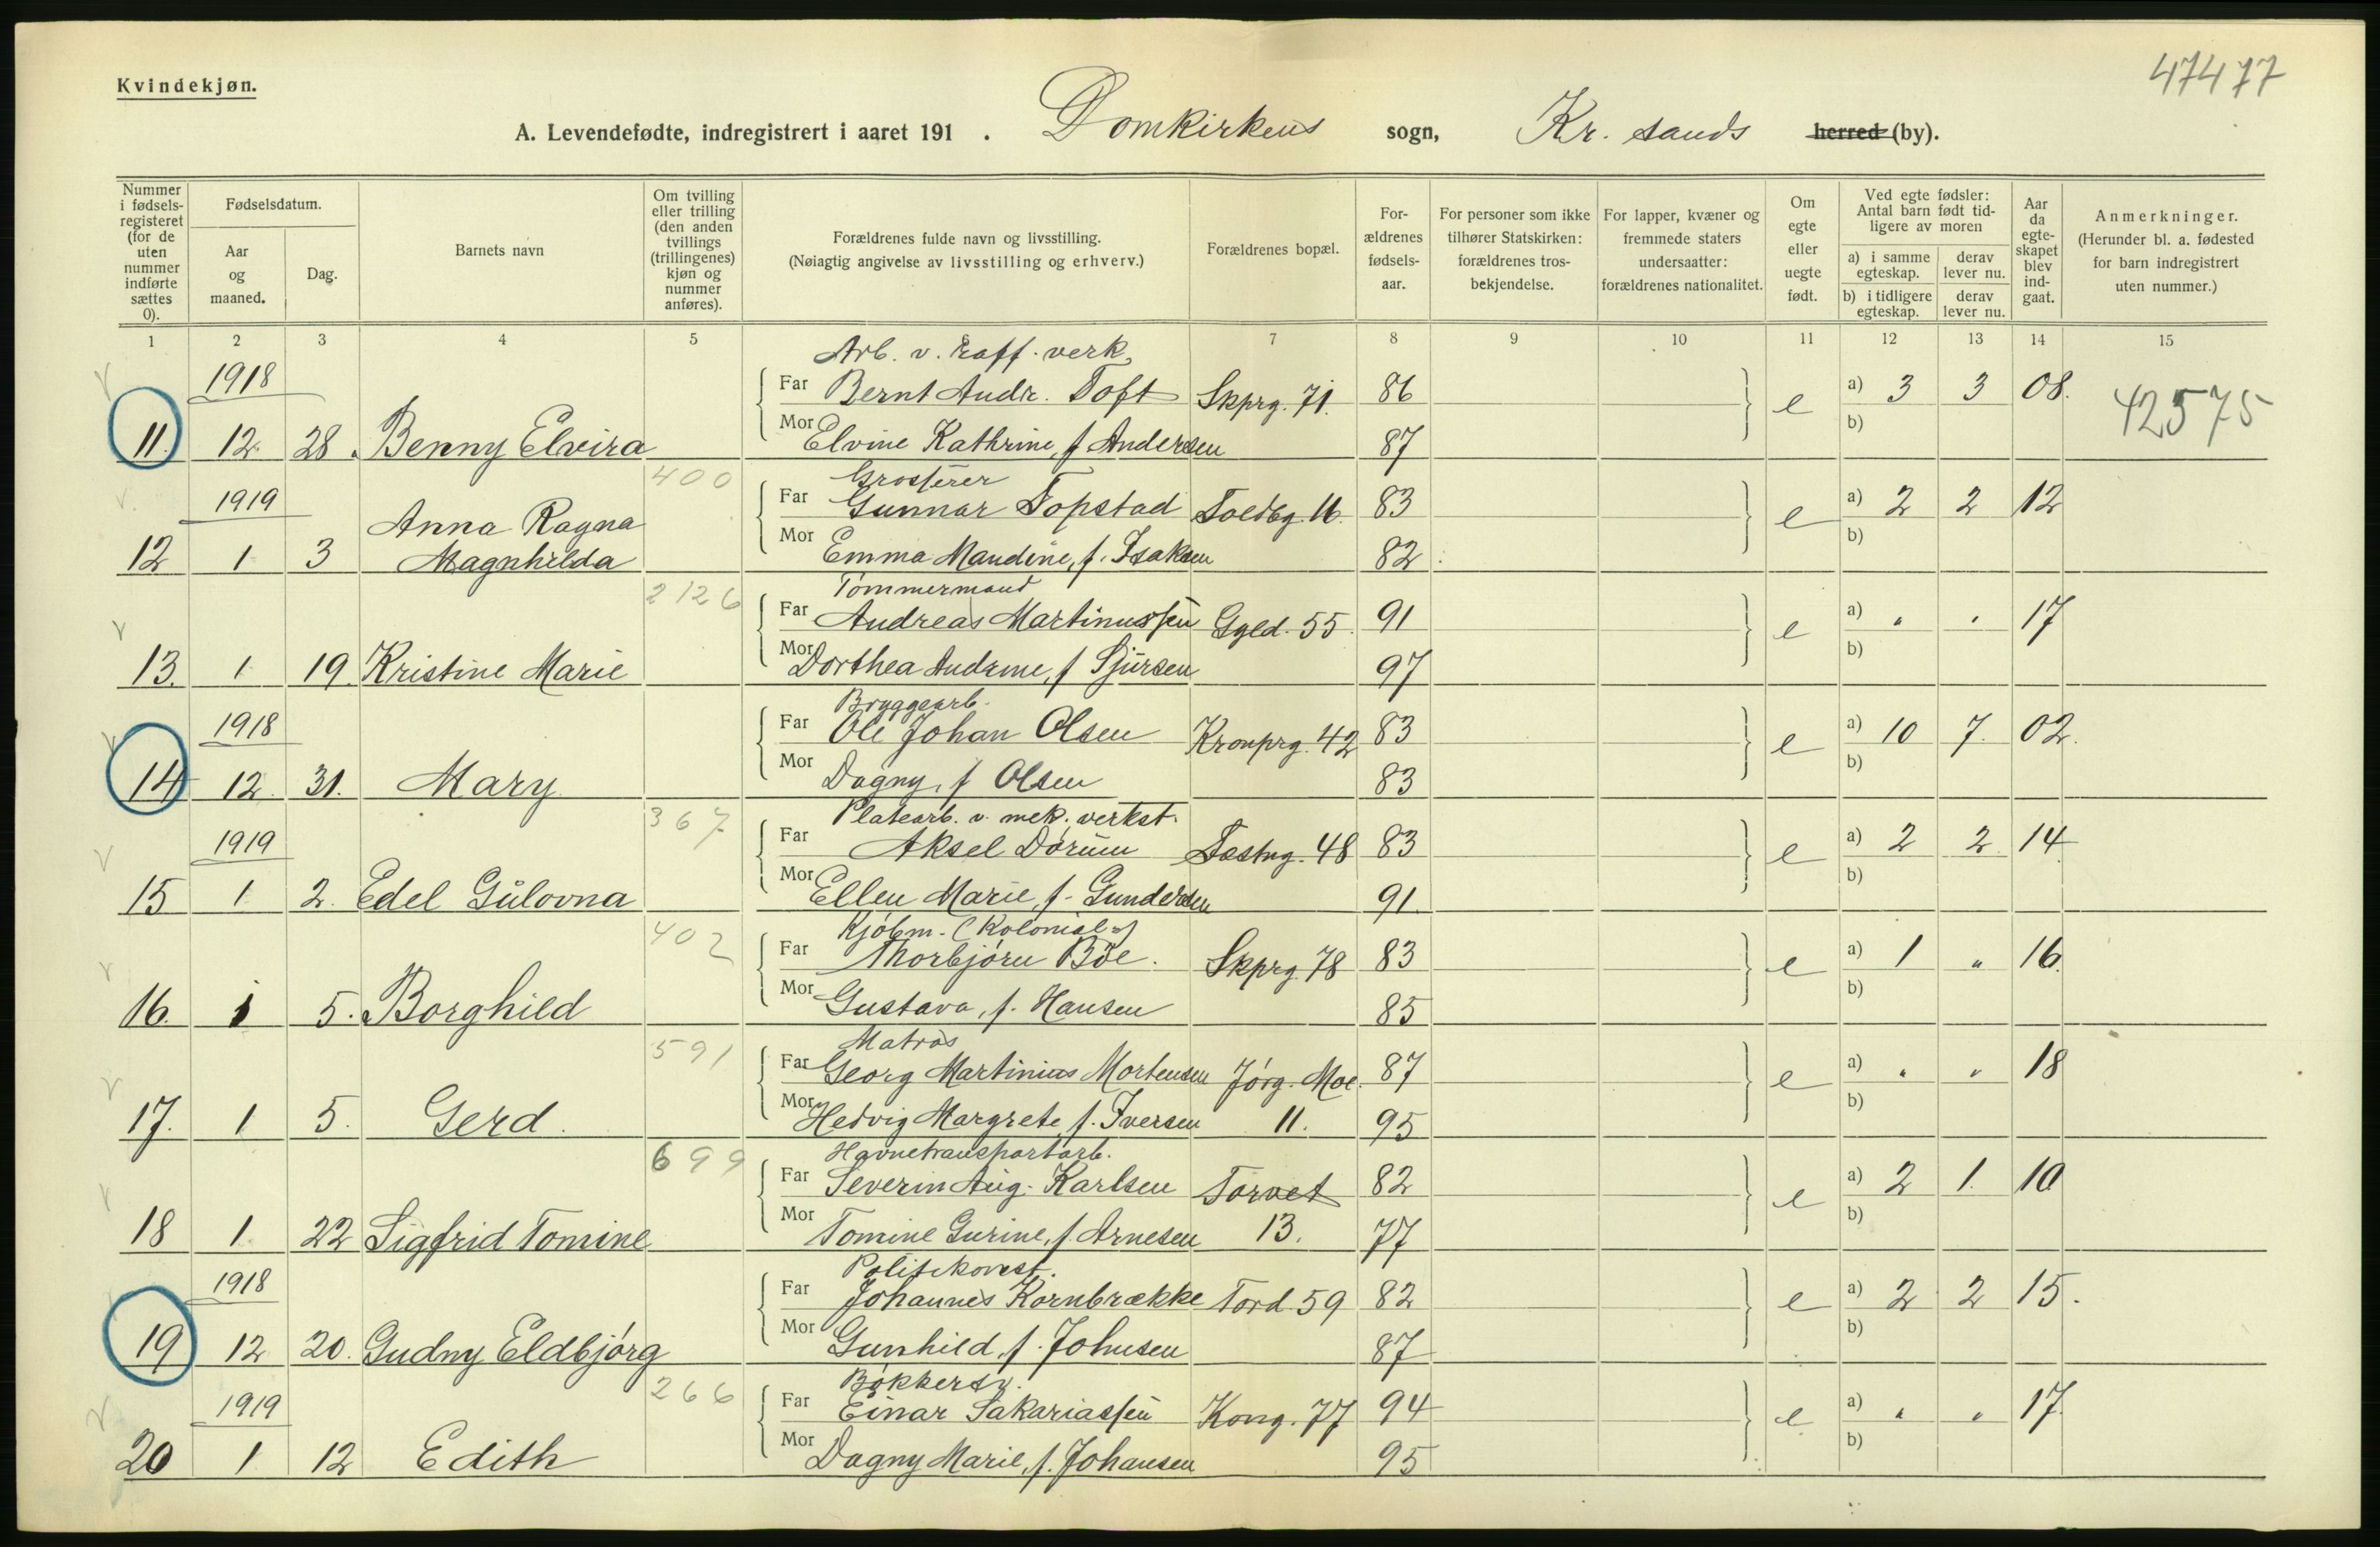 47477
Kvindekjøn.
A. Levendefødte, indregistrert i aaret 191 . Domkirkens sogn, Kr. sands herred (by).
Nummer i fødsels-registeret (for de uten nummer indførte sættes 0).
Fødselsdatum.
Aar og maaned.
Dag.
Barnets navn
Om tvilling eller trilling (den anden tvillings (trillingenes) kjøn og nummer anføres).
Forældrenes fulde navn og livsstilling. (Nøiagtig angivelse av livsstilling og erhverv.)
Forældrenes bopæl.
For-ældrenes fødsels-aar.
For personer som ikke tilhører Statskirken: forældrenes tros-bekjendelse.
For lapper, kvæner og fremmede staters undersaatter: forældrenes nationalitet.
Om egte eller uegte født.
Ved egte fødsler: Antal barn født tid-ligere av moren
a) i samme egteskap. derav lever nu.
b) i tidligere egteskap. derav lever nu.
Aar da egte-skapet blev ind-gaat.
Anmerkninger. (Herunder bl. a. fødested for barn indregistrert uten nummer.)
1 2 3 4 5 7 8 9 10 11 12 13 14 15
Arb. v. raff. verk.
1918 Far Bernt Andr. Toft Skprg. 71. 86 e a) 3 3 08. 42575
11. 12. 28. Benny Elvira Mor Elvine Kathrine, f Andersen 87 b)
400 Grosserer
1919 Far Gunnar Topstad Toldbg. 16. 83 e a) 2 2 12
Anna Ragna
12 1 3 Magnhilda Mor Emma Maudine, f. Isaksen 82 b)
2126 Tømmermand
Far Andreas Martinussen Gyld. 55. 91 e a) " " 17
13. 1 19. Kristine Marie Mor Dorthea Andrine, f Sjursen 97 b)
Bryggearb.
1918 Far Ole Johan Olsen Kronprg. 42 83 e a) 10 7. 02.
14 12. 31. Mary Mor Dagny, f Olsen 83 b)
367 Platearb. v. mek. verkst.
1919 Far Aksel Dørum Fæstng. 48 83 e a) 2 2 14
15 1 2. Edel Gulovna Mor Ellen Marie, f. Gundersen 91. b)
402 Kjøbm. (Kolonial=)
Far Thorbjørn Bøe. Skprg. 78 83 e a) 1 " 16.
16. 1 5. Borghild Mor Gustava, f. Hansen 85 b)
591 Matros
Far Georg Martinius Mortensen Jørg. Moe. 87 e a) " " 18
17. 1 5. Gerd. Mor Hedvig Margrete f. Iversen 11. 95 b)
699 Havnetransportarb.
Far Severin Aug. Karlsen Torvet 82 e a) 2 1. 10
18 1 22 Sigfrid Tomine Mor Tomine Gurine, f. Arnesen 13. 77 b)
Politikonst.
1918 Far Johannes Kornbrække Tord. 59 82 e a) 2 2 15.
19 12 20. Gudny Eldbjørg Mor Gunhild, f. Johnsen 87 b)
266 Bøkkersv.
1919 Far Einar Sakariassen Kong. 77 94 e a) " " 17.
20 1 12 Edith Mor Dagny Marie, f. Johansen 95 b)